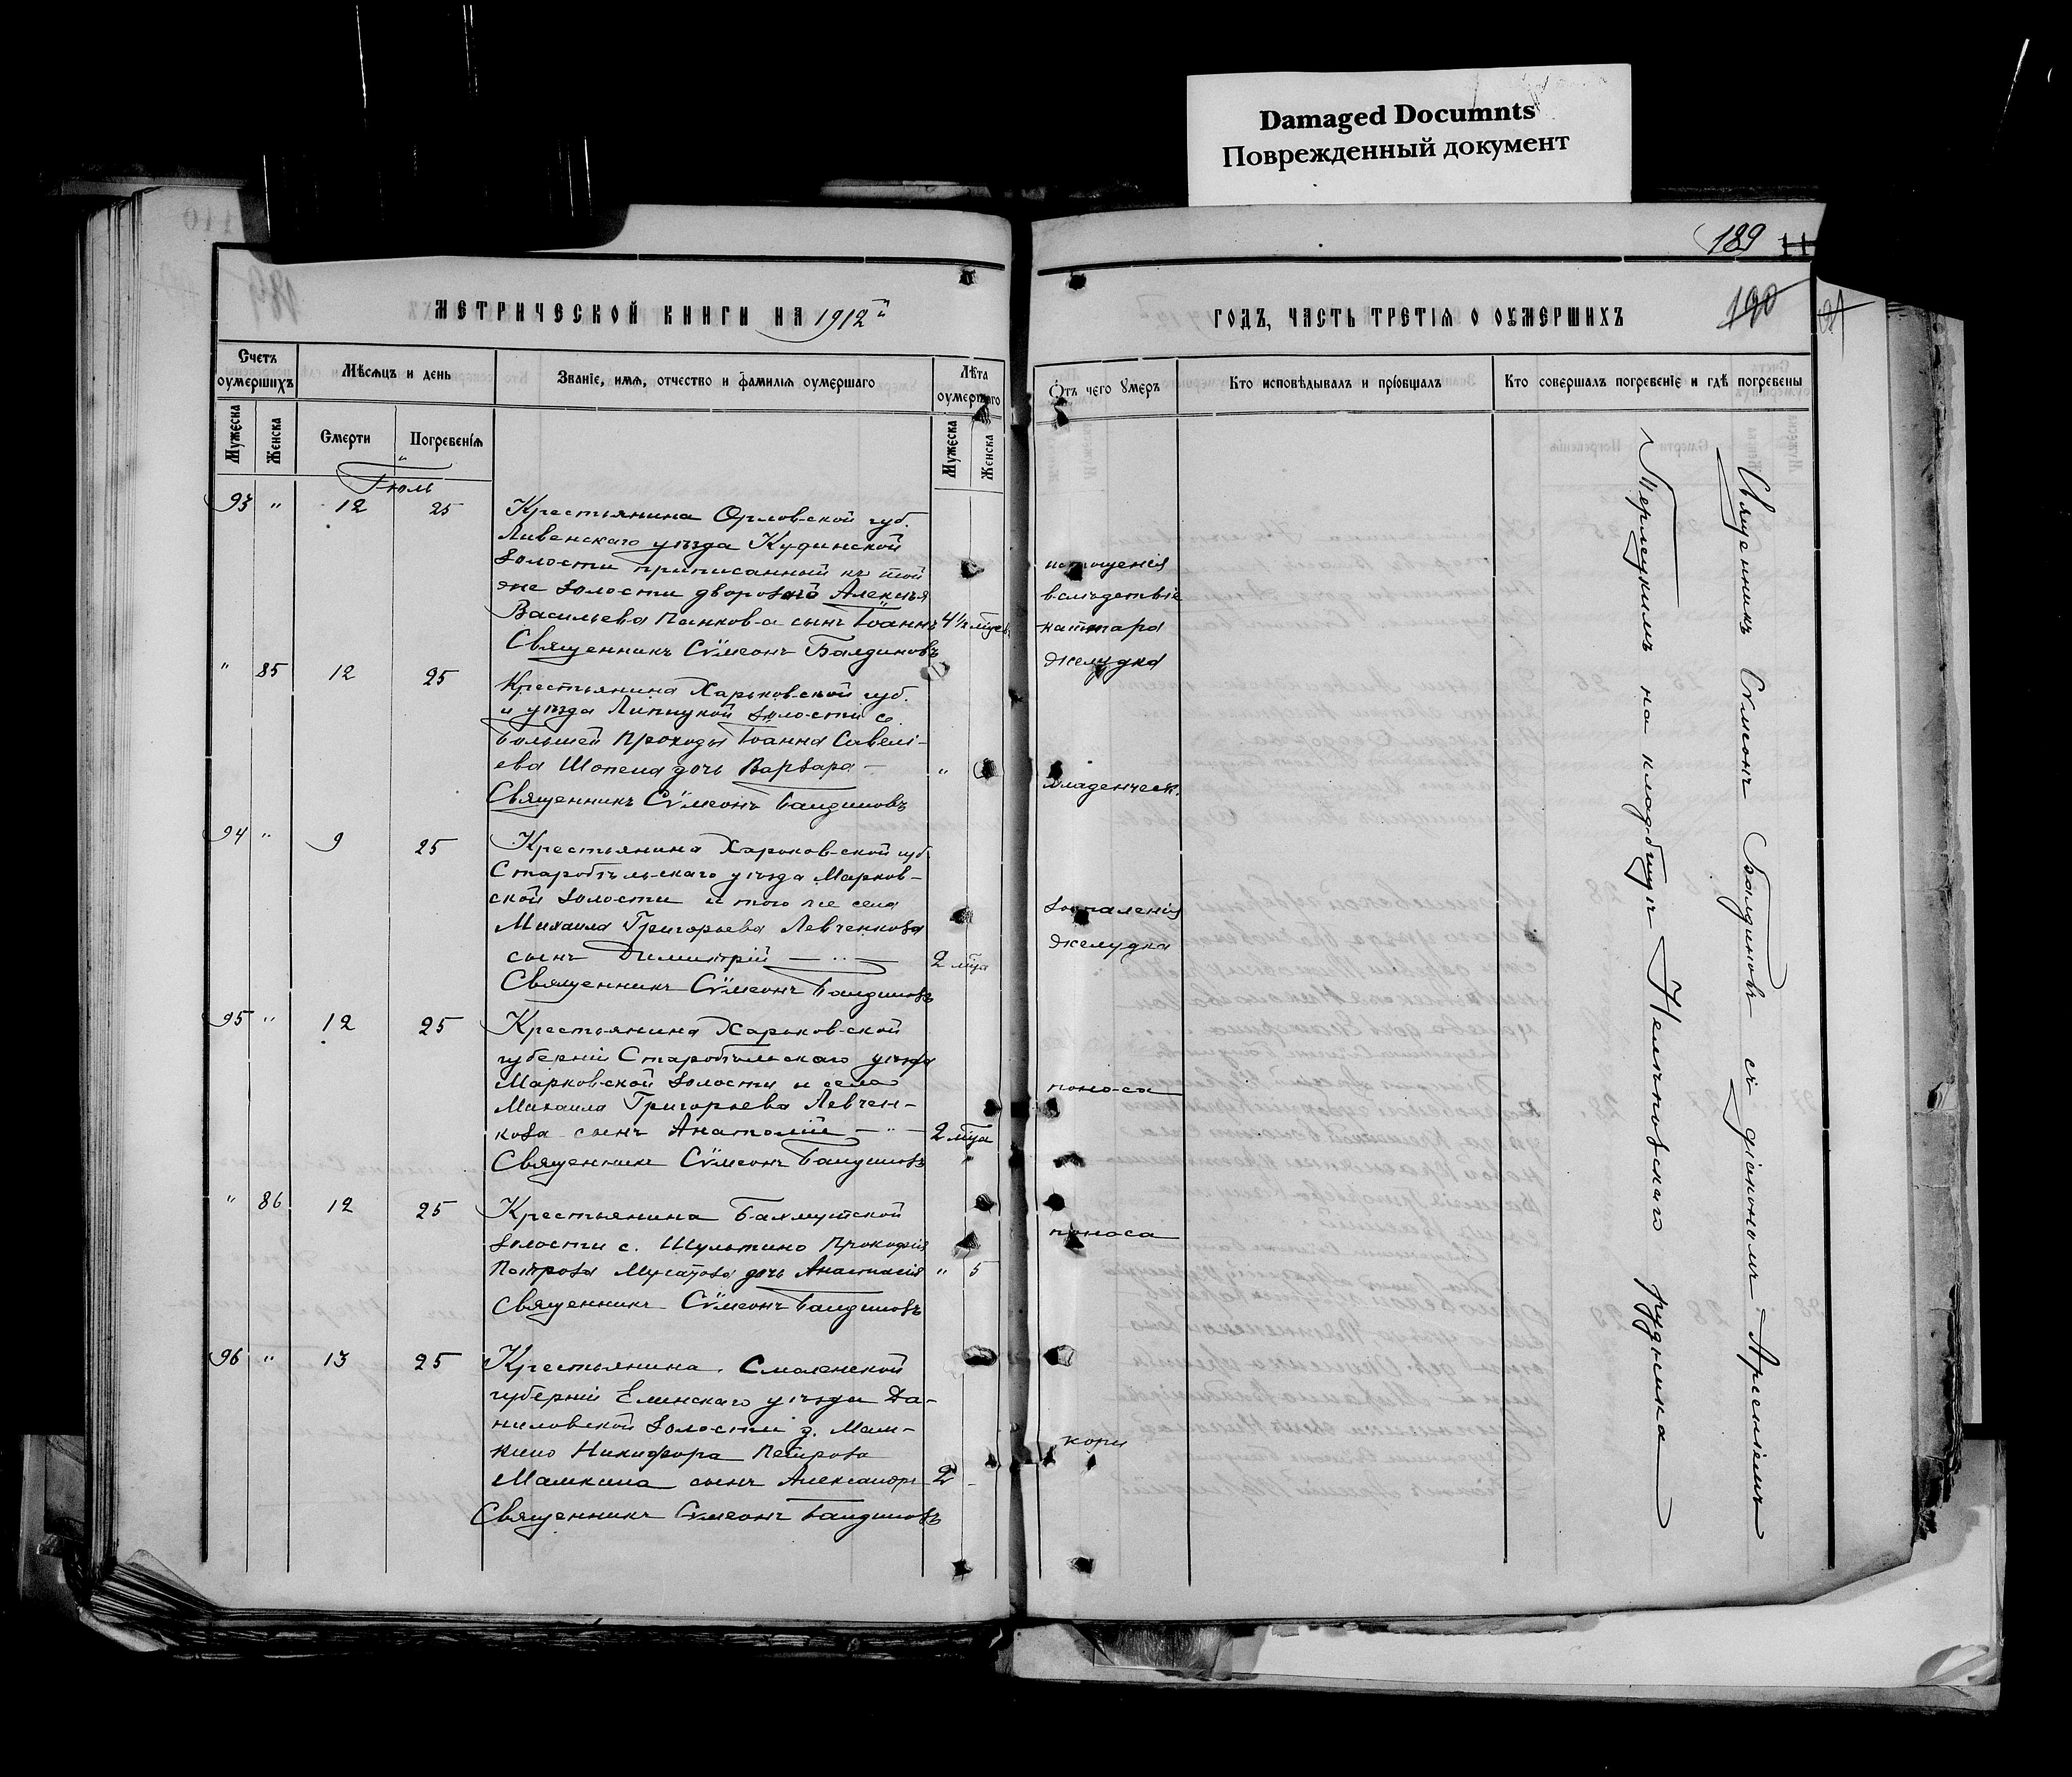 Damaged Documnts
Поврежденный документ
189
190
МЕТРИЧЕСКОЙ КНИГИ НА 1912й
ГОДЪ, ЧАСТЬ ТРЕТІЯ О ОУМЕРШИХЪ
Счетъ оумершихъ
Мѣсяцъ и день
Званіе, имя, отчество и фамилія оумершаго
Лѣта оумершаго
Отъ чего умеръ
Кто исповѣдывалъ и пріобщалъ
Кто совершалъ погребеніе и гдѣ погребены
Мужеска
Женска
Смерти
Погребенія
Мужеска
Женска
Іюль
93 " 12 25
Крестьянина Орловской губ.
Ливенскаго уѣзда Кудинской
волости приписанный къ той
же волости дворовой Алексѣя
Васильева Панкова сынъ Іоаннъ 4½ мѣсяц
Священникъ Сѵмеонъ Балдиновъ
истощенія
вслѣдствіе
каттара
желудка
" 85 12 25
Крестьянина Харьковской губ.
и уѣзда Липицкой волости с.
Большей Проходы Іоанна Савелі-
ева Шопена дочь Варвара "
Священникъ Сѵмеонъ Балдиновъ
младенческ.
94 " 9 25
Крестьянина Харьковской губ
Старобѣльскаго уѣзда Марков-
ской волости и того же села
Михаила Григорьева Левченкова
сынъ Димитрій 2 мца
Священникъ Сѵмеонъ Балдиновъ
воспаленія
желудка
95 " 12 25
Крестьянина Харьковской
губерніи Старобѣльскаго уѣзда
Марковской волости и села
Михаила Григорьева Левчен-
кова сынъ Анатолій 2 мца
Священникъ Сѵмеонъ Балдиновъ
поноса
" 86 12 25
Крестьянина Бахмутской
волости с. Шульгино Прокофія
Петрова Мусатова дочь Анастасія " 5
Священникъ Сѵмеонъ Балдиновъ
поноса
96 " 13 25
Крестьянина Смоленской
губерніи Елинскаго уѣзда Да-
ниловской волости д. Мам-
кино Никифора Петрова
Мамкина сынъ Александръ 2
Священникъ Сѵмеонъ Балдиновъ
кори
Священникъ Сѵмеонъ Балдиновъ съ діакономъ Арсеніемъ
Терлецкимъ на кладбищѣ Нелѣповскаго рудника